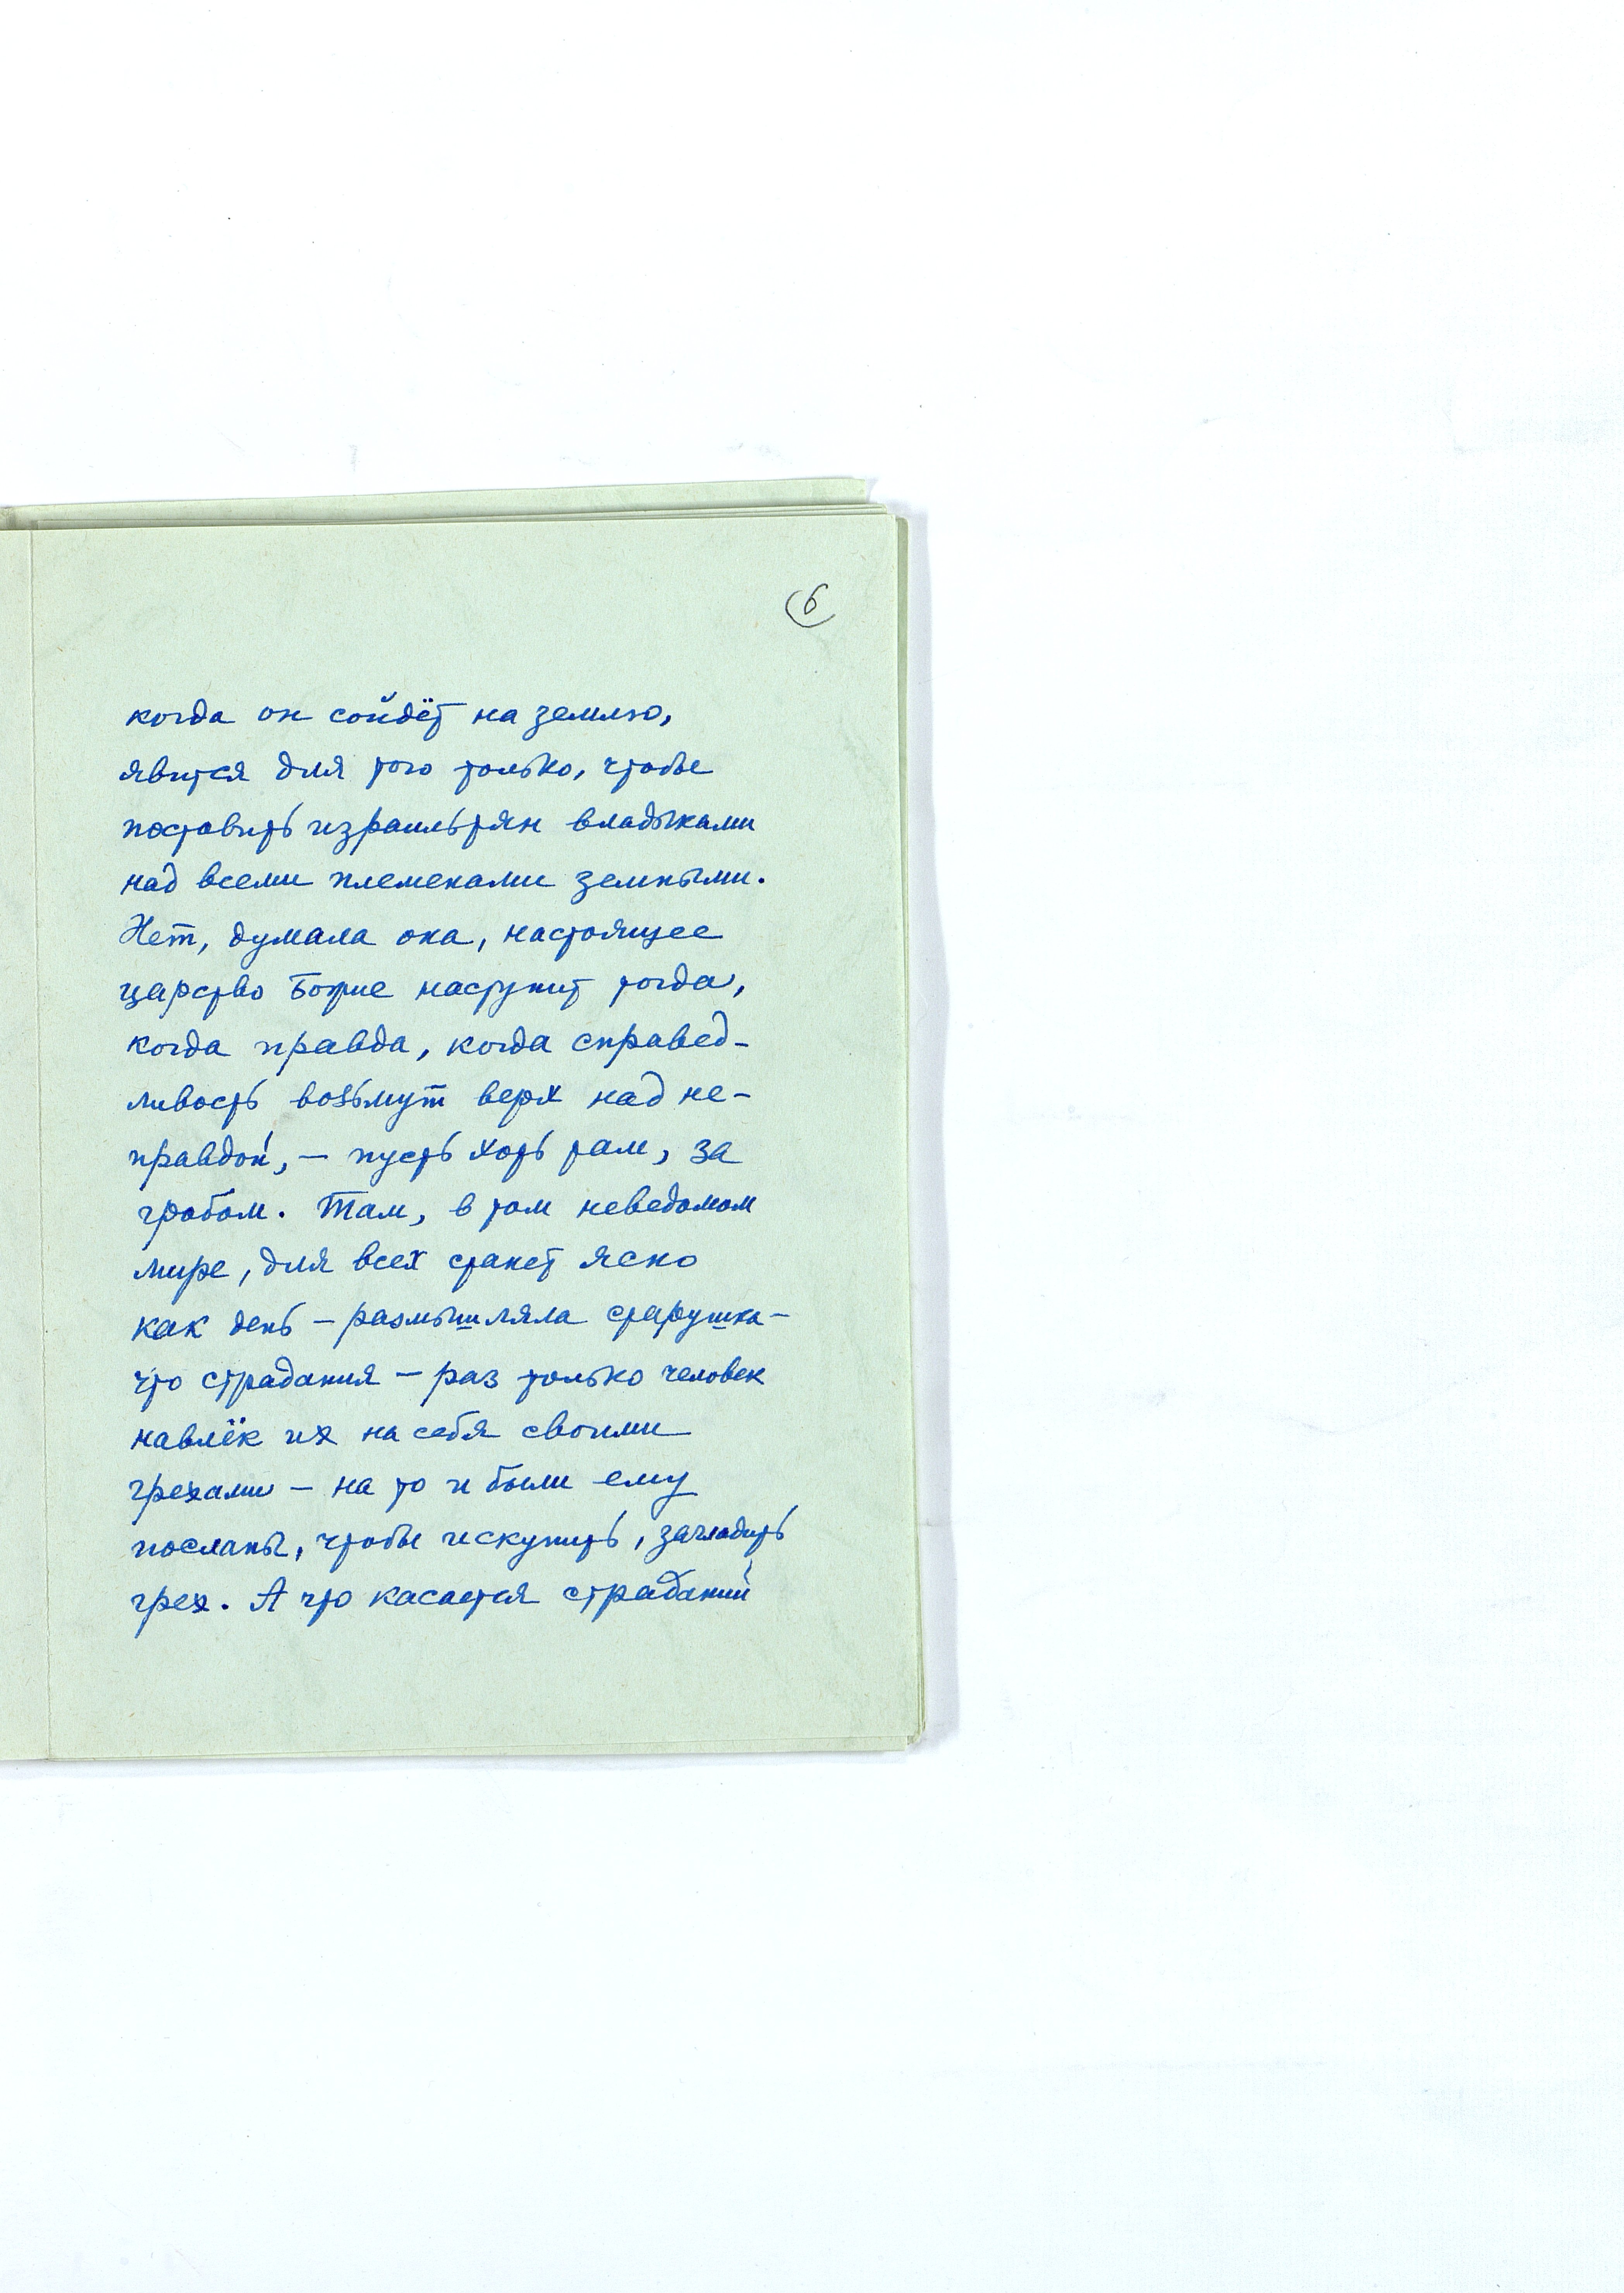 6
когда он сойдёт на землю,
явится для того только, чтобы
поставить израильтян владыками
над всеми племенами земными.
Нет, думала она, настоящее
царство Божие наступит тогда,
когда правда, когда справед-
ливость возьмут верх над не-
правдой, – пусть хоть там, за
гробом. Там, в том неведомом
мире, для всех станет ясно
как день – размышляла старушка –
что страдания – раз только человек
навлёк их на себя своими
грехами – на то и были ему
посланы, чтобы искупить, загладить
грех. А что касается страданий